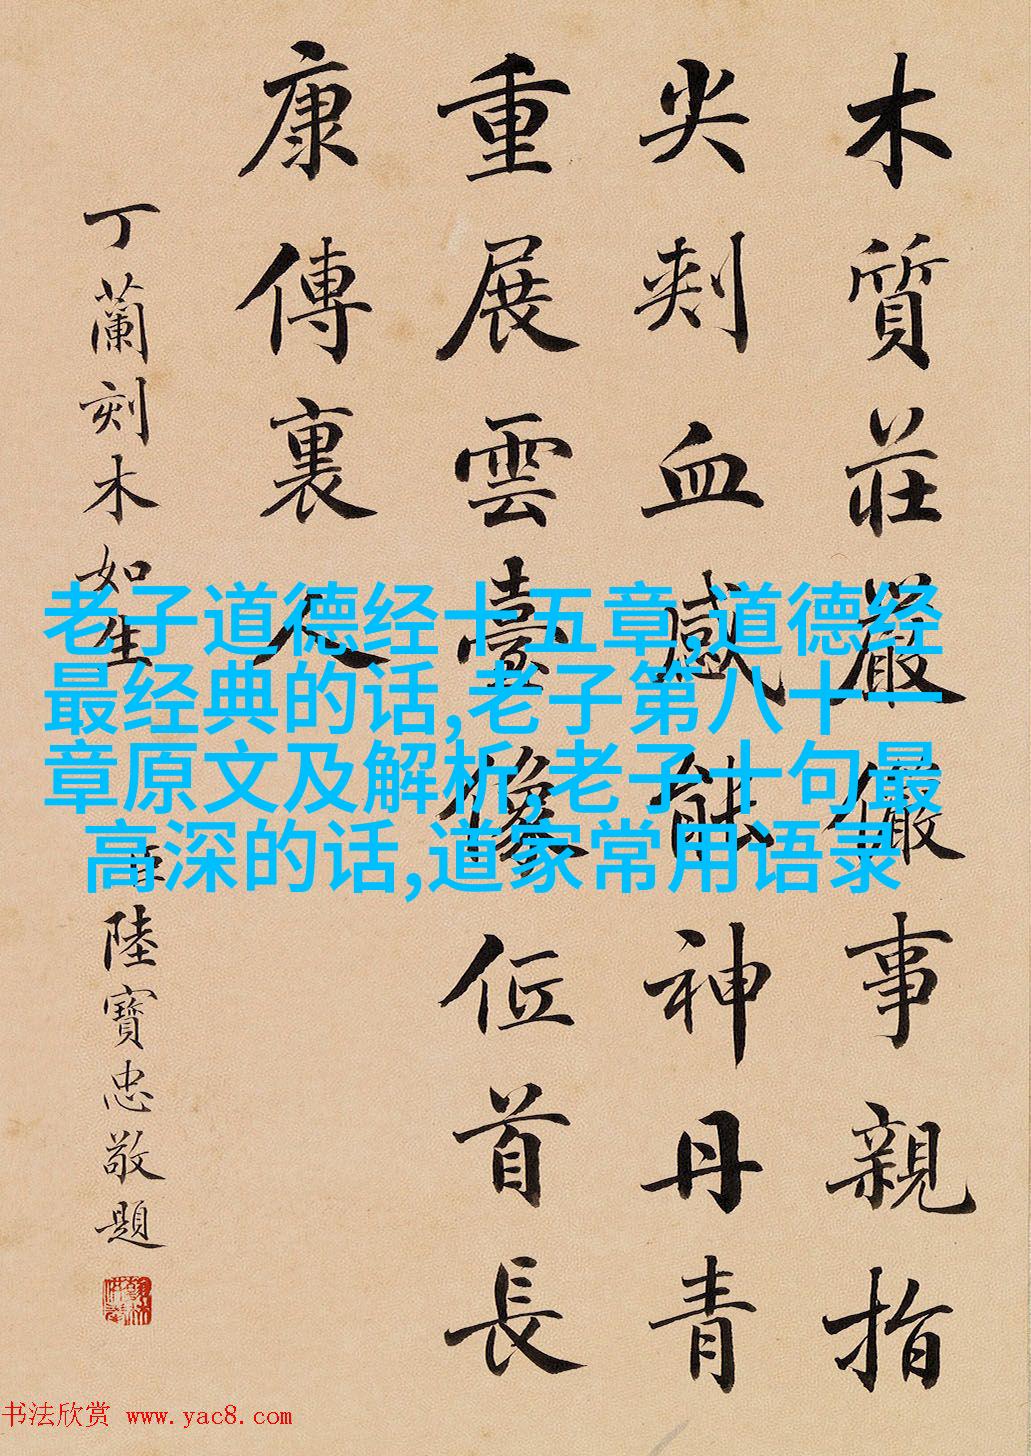 木質莊嚴儼事親指
尖刾血感能神丹青
重展雲臺像首長
康傳裏人
丁蘭刻木如生
陸寶忠敬題
老子道德经十五章,道德经
最经典的话,老子第八十一
章原文及解析,老子十句最
高深的话,道家常用语录
书法欣赏 www.yac8.com